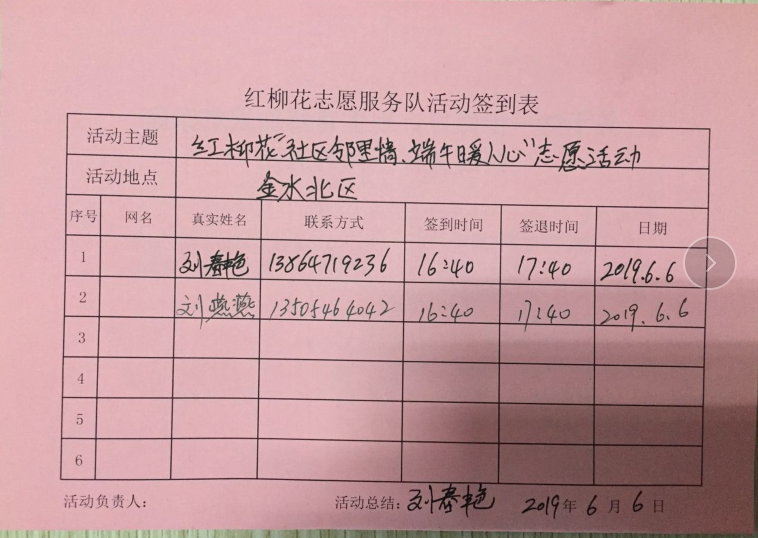 红柳花志愿服务队活动签到表
活动主题 红柳花“社区邻里情、端午暖人心”志愿活动
活动地点 金水北区
序号 网名 真实姓名 联系方式 签到时间 签退时间 日期
1 刘春艳 13864719236 16:40 17:40 2019.6.6
2 刘燕燕 13505464042 16:40 17:40 2019.6.6
3
4
5
6
活动负责人: 活动总结: 刘春艳 2019年6月6日